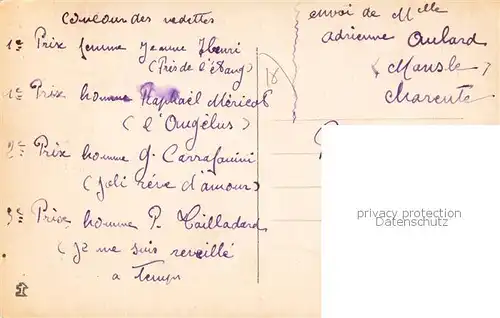 concours des vedettes
1er Prix femme Jeanne Henri
(Près de l'étang)
1er Prix homme Raphaël Méricot
(l'Angélus)
2e Prix homme G. Carrafanini
(Joli rêve d'amour)
3e Prix homme P. Tailladard
(Je me suis reveillé
a Temps
18
envoi de Melle
Adrienne Aulard
(Mansle)
Charente
privacy protection
www.ansichtskartenversand.com